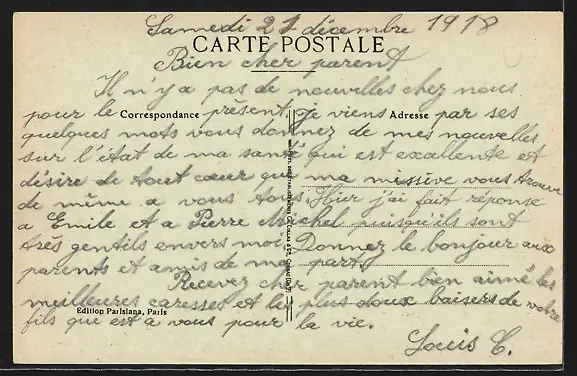 Samedi 21 décembre 1918
CARTE POSTALE
Bien cher parent
Il n'y a pas de nouvelles chez nous
pour le présent, je viens par ses
Correspondance
Adresse
quelques mots vous donnez de mes nouvelles
sur l'état de ma santé qui est exallente et
désire de tout cœur que ma missive vous trouve
de même a vous tous. Hier j'ai fait réponse
a Emile et a Pierre Michel puisqu'ils sont
très gentils envers moi. Donnez le bonjour aux
parents et amis de ma part.
Recevez cher parent bien aimé les
meilleures caresses et les plus doux baisers de votre
Edition Parisiana, Paris
fils que est a vous pour la vie.
Louis C.